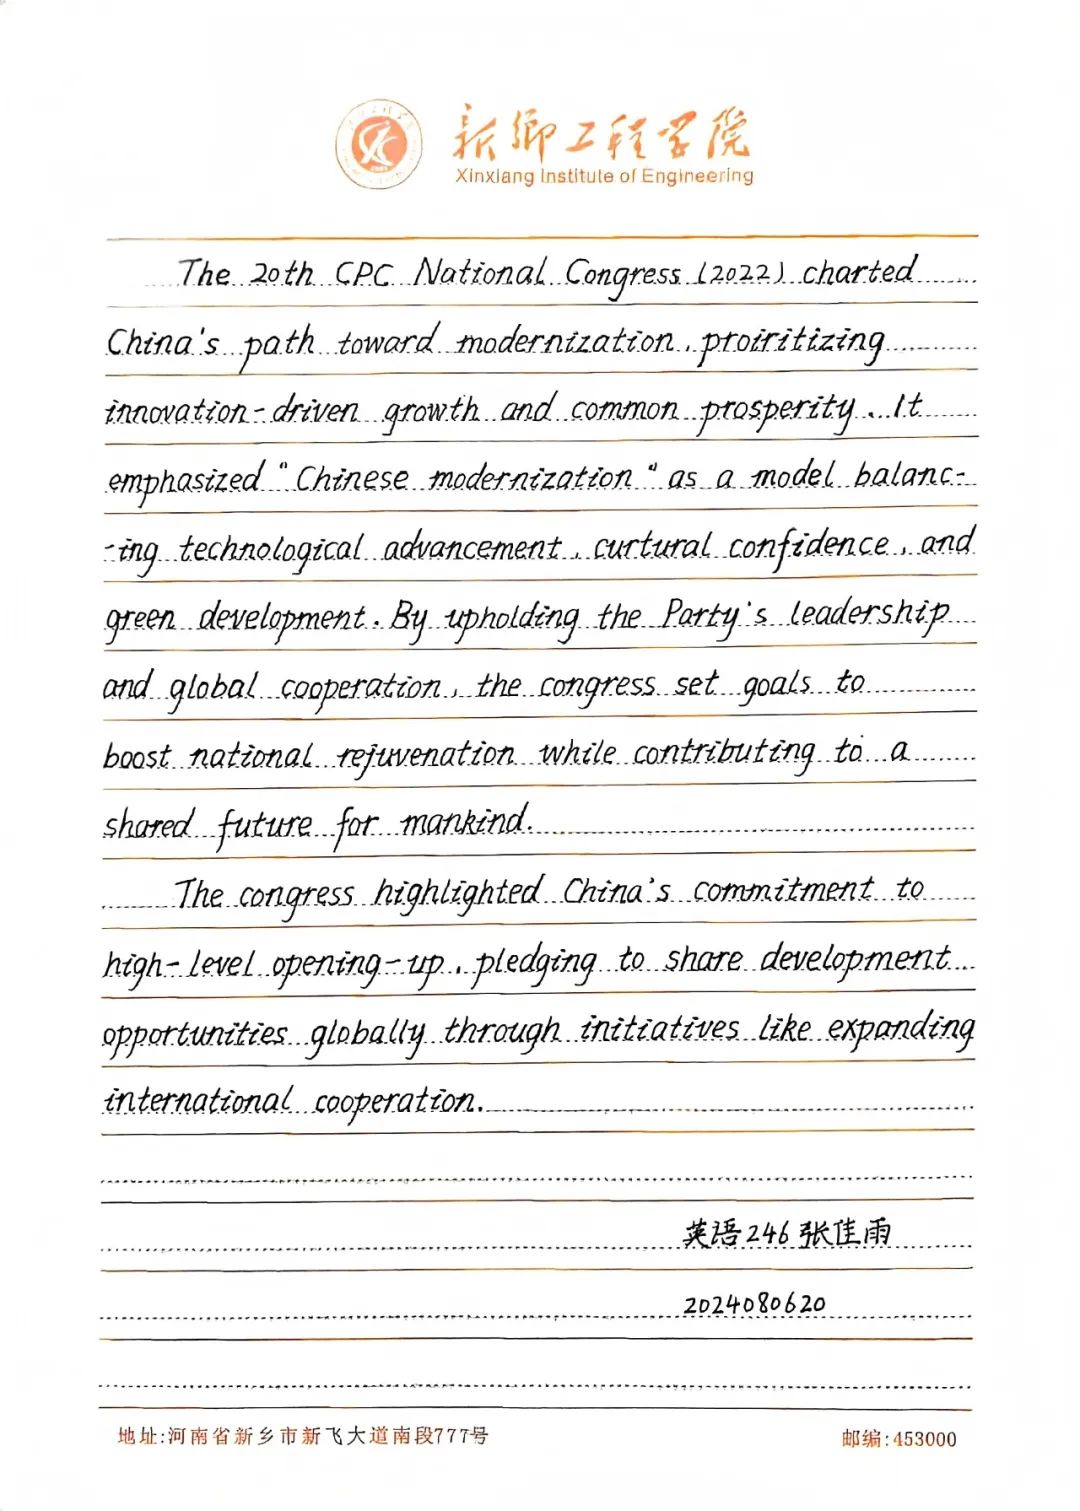 新鄉工程学院
Xinxiang Institute of Engineering
The 20th CPC National Congress (2022) charted
China's path toward modernization, proiritizing
innovation-driven growth and common prosperity. It
emphasized "Chinese modernization" as a model balanc-
-ing technological advancement, curtural confidence, and
green development. By upholding the Party's leadership
and global cooperation, the congress set goals to
boost national rejuvenation while contributing to a
shared future for mankind.
The congress highlighted China's commitment to
high-level opening-up, pledging to share development
opportunities globally through initiatives like expanding
international cooperation.
英语246 张佳雨
2024080620
地址:河南省新乡市新飞大道南段777号
邮编:453000